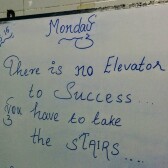 Monday
There is no Elevator
to Success....
you have to take
the STAIRS....